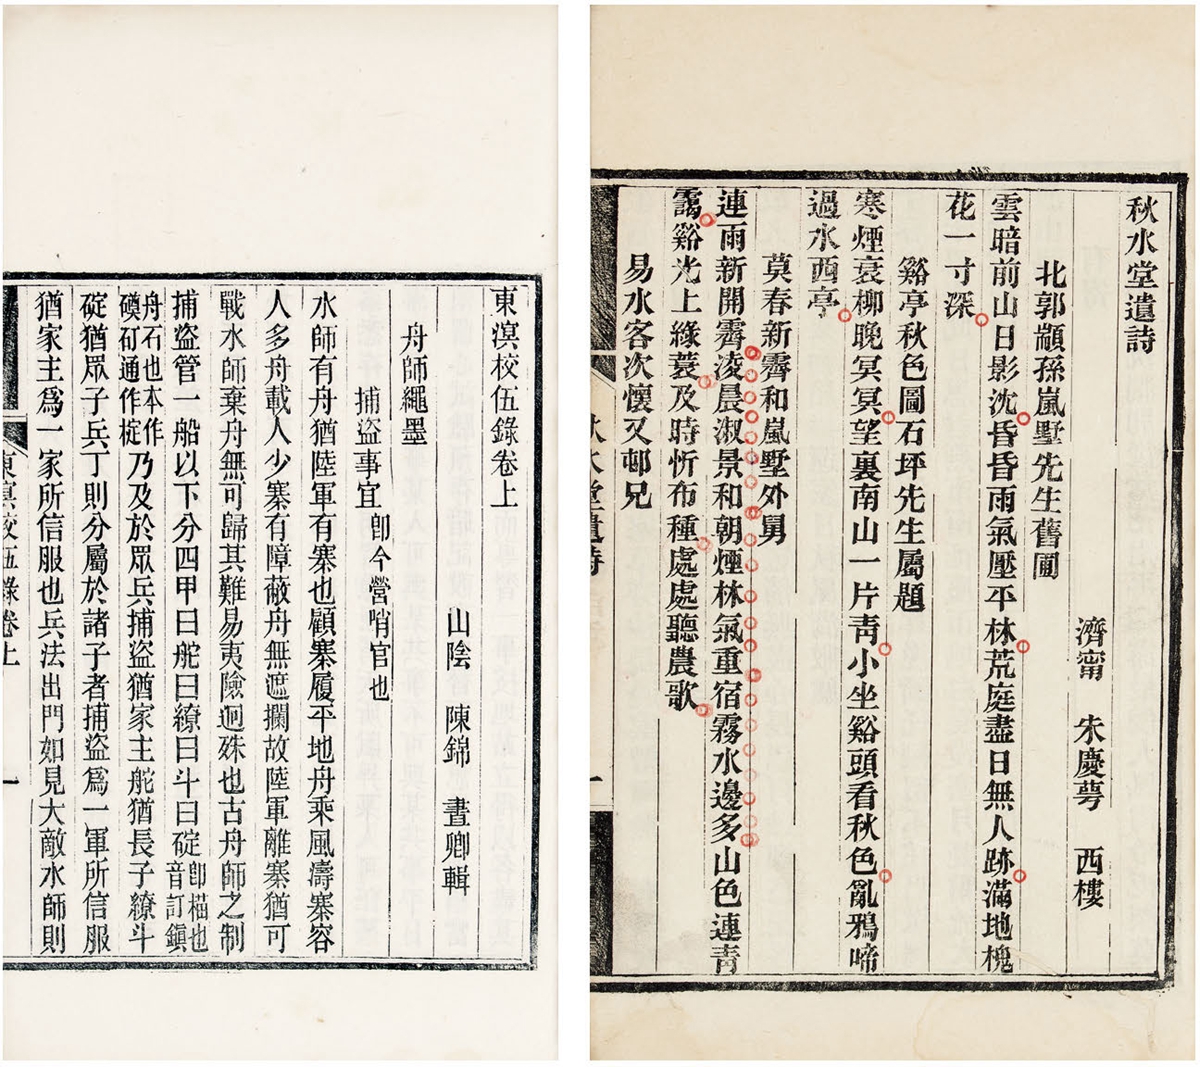 秋水堂遺詩
濟甯 朱慶萼 西樓
北郭顓孫嵐墅先生舊圃
雲暗前山日影沈昏昏雨氣壓平林荒庭盡日無人跡滿地槐
花一寸深
谿亭秋色圖石坪先生屬題
寒煙衰柳晚冥冥望裏南山一片靑小坐谿頭看秋色亂鴉啼
過水西亭
莫春新霽和嵐墅外舅
連雨新開霽凌晨淑景和朝煙林氣重宿霧水邊多山色連靑
靄谿光上綠蓑及時忻布種處處聽農歌
易水客次懷又邨兄
秋水堂遺詩 一
東溟校伍錄卷上
山陰 陳錦 晝卿輯
舟師繩墨
捕盜事宜 卽今營哨官也
水師有舟猶陸軍有寨也顧寨履平地舟乘風濤寨容
人多舟載人少寨有障蔽舟無遮攔故陸軍離寨猶可
戰水師棄舟無可歸其難易夷險逈殊也古舟師之制
捕盜管一船以下分四甲曰舵曰繚曰斗曰碇卽錨也音訂鎭
舟石也本作磸矴通作椗乃及於眾兵捕盜猶家主舵猶長子繚斗
碇猶眾子兵丁則分屬於諸子者捕盜爲一軍所信服
猶家主爲一家所信服也兵法出門如見大敵水師則
東溟校伍錄卷上 一